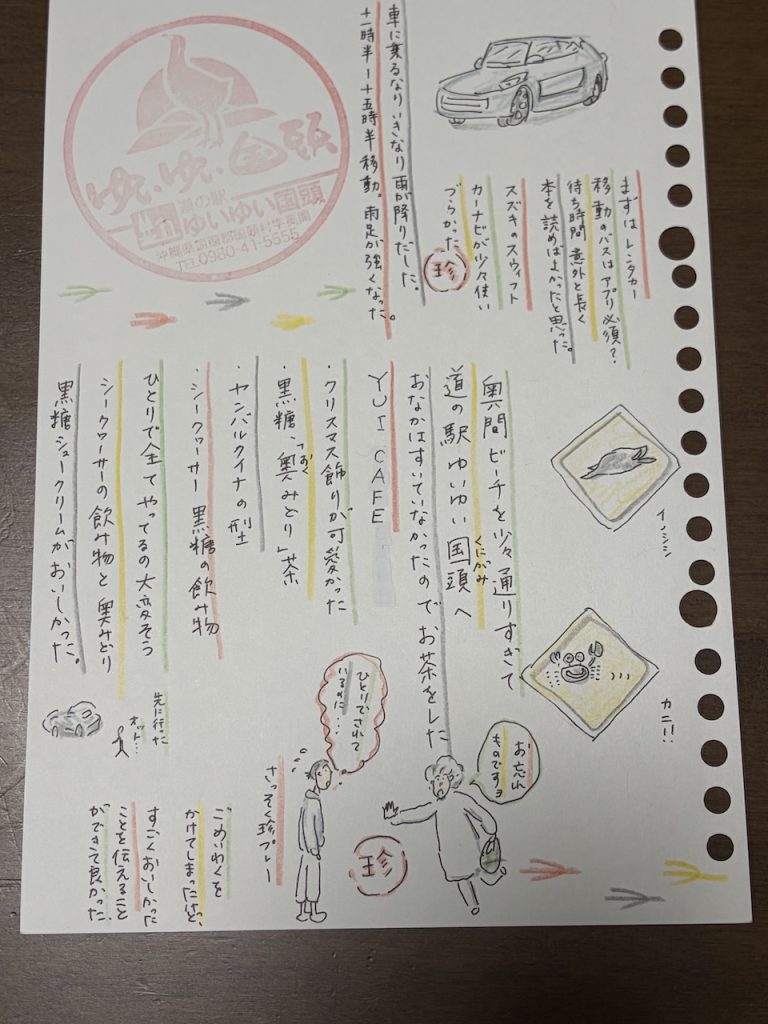 まずはレンタカー
移動のバスはアプリ必須？
待ち時間 意外と長く
本を読めばよかったと思った。
スズキのスウィフト
カーナビが少々使い
づらかった
珍
車に乗るなりいきなり雨が降りだした。
十一時半ー十五時半移動。雨足が強くなった。
ゆいゆい国頭
道の駅
ゆいゆい国頭
沖縄県国頭郡国頭村字奥間
TEL 0980-41-5555
イノシシ
カニ!!
奥間ビーチを少々通りすぎて
道の駅ゆいゆい国頭へ
くにがみ
おなかはすいていなかったのでお茶をした
YUI CAFE
・クリスマス飾りが可愛かった
・黒糖、「奥みどり」茶
おく
・ヤンバルクイナの型
・シークヮーサー 黒糖の飲み物
ひとりで全てやってるの大変そう
シークヮーサーの飲み物と奥みどり
黒糖シュークリームがおいしかった。
お忘れ
ものですョ
ひとりでされて
いるのに…
珍
さっそく珍プレー
ごめいわくを
かけてしまったけど、
すごくおいしかった
ことを伝えること
ができて良かった
先に行った
オット…